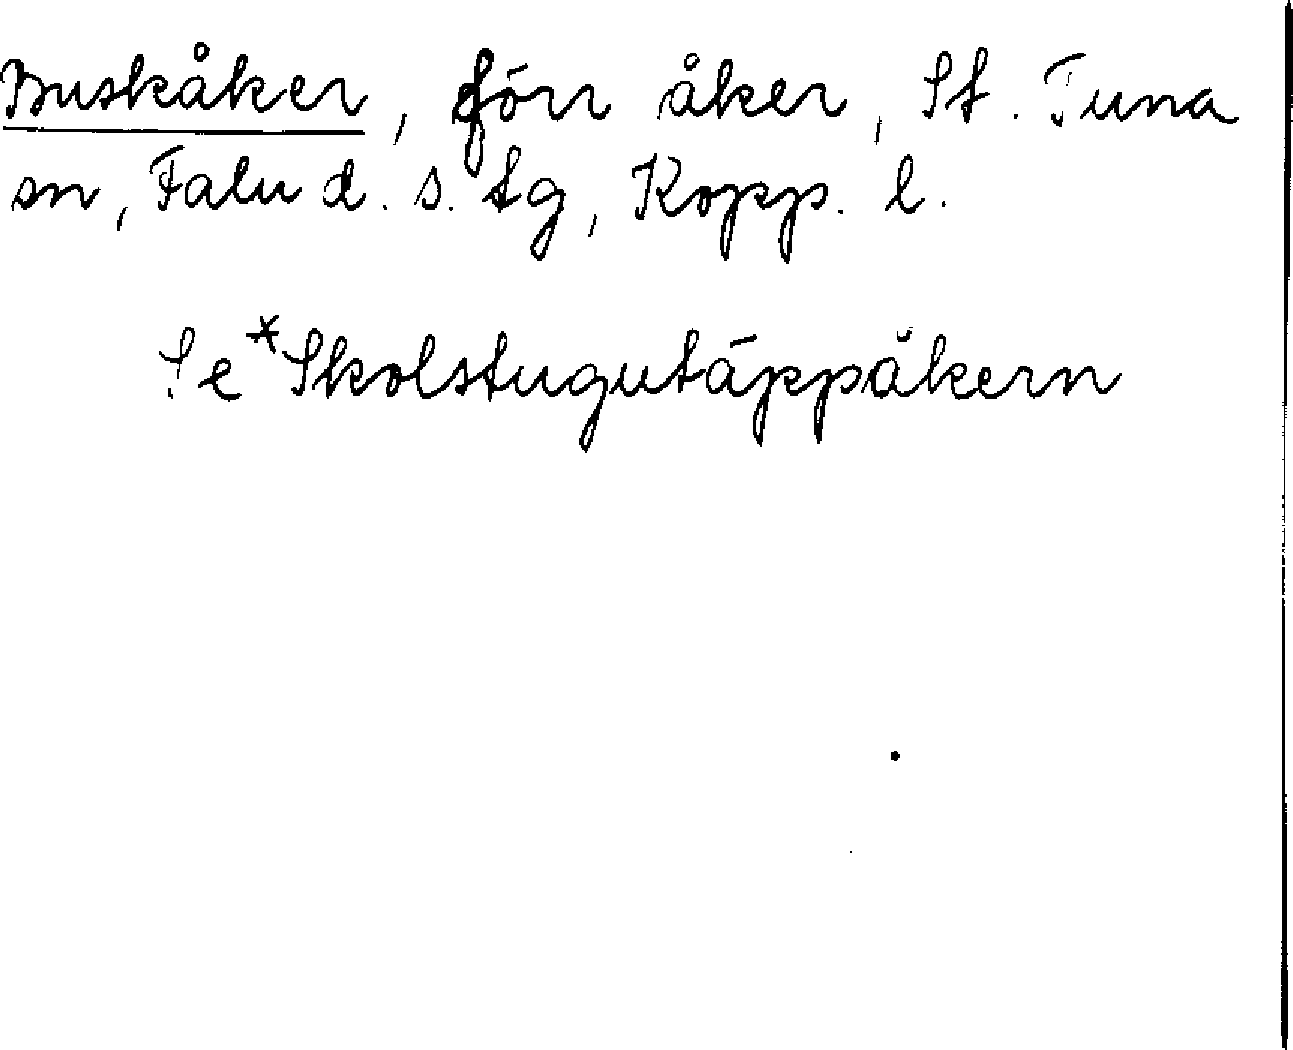 Buskåker, förr åker, St. Tuna
sn, Falu d. s. tg, Kopp. l.
Se *Skolstugutäppåkern